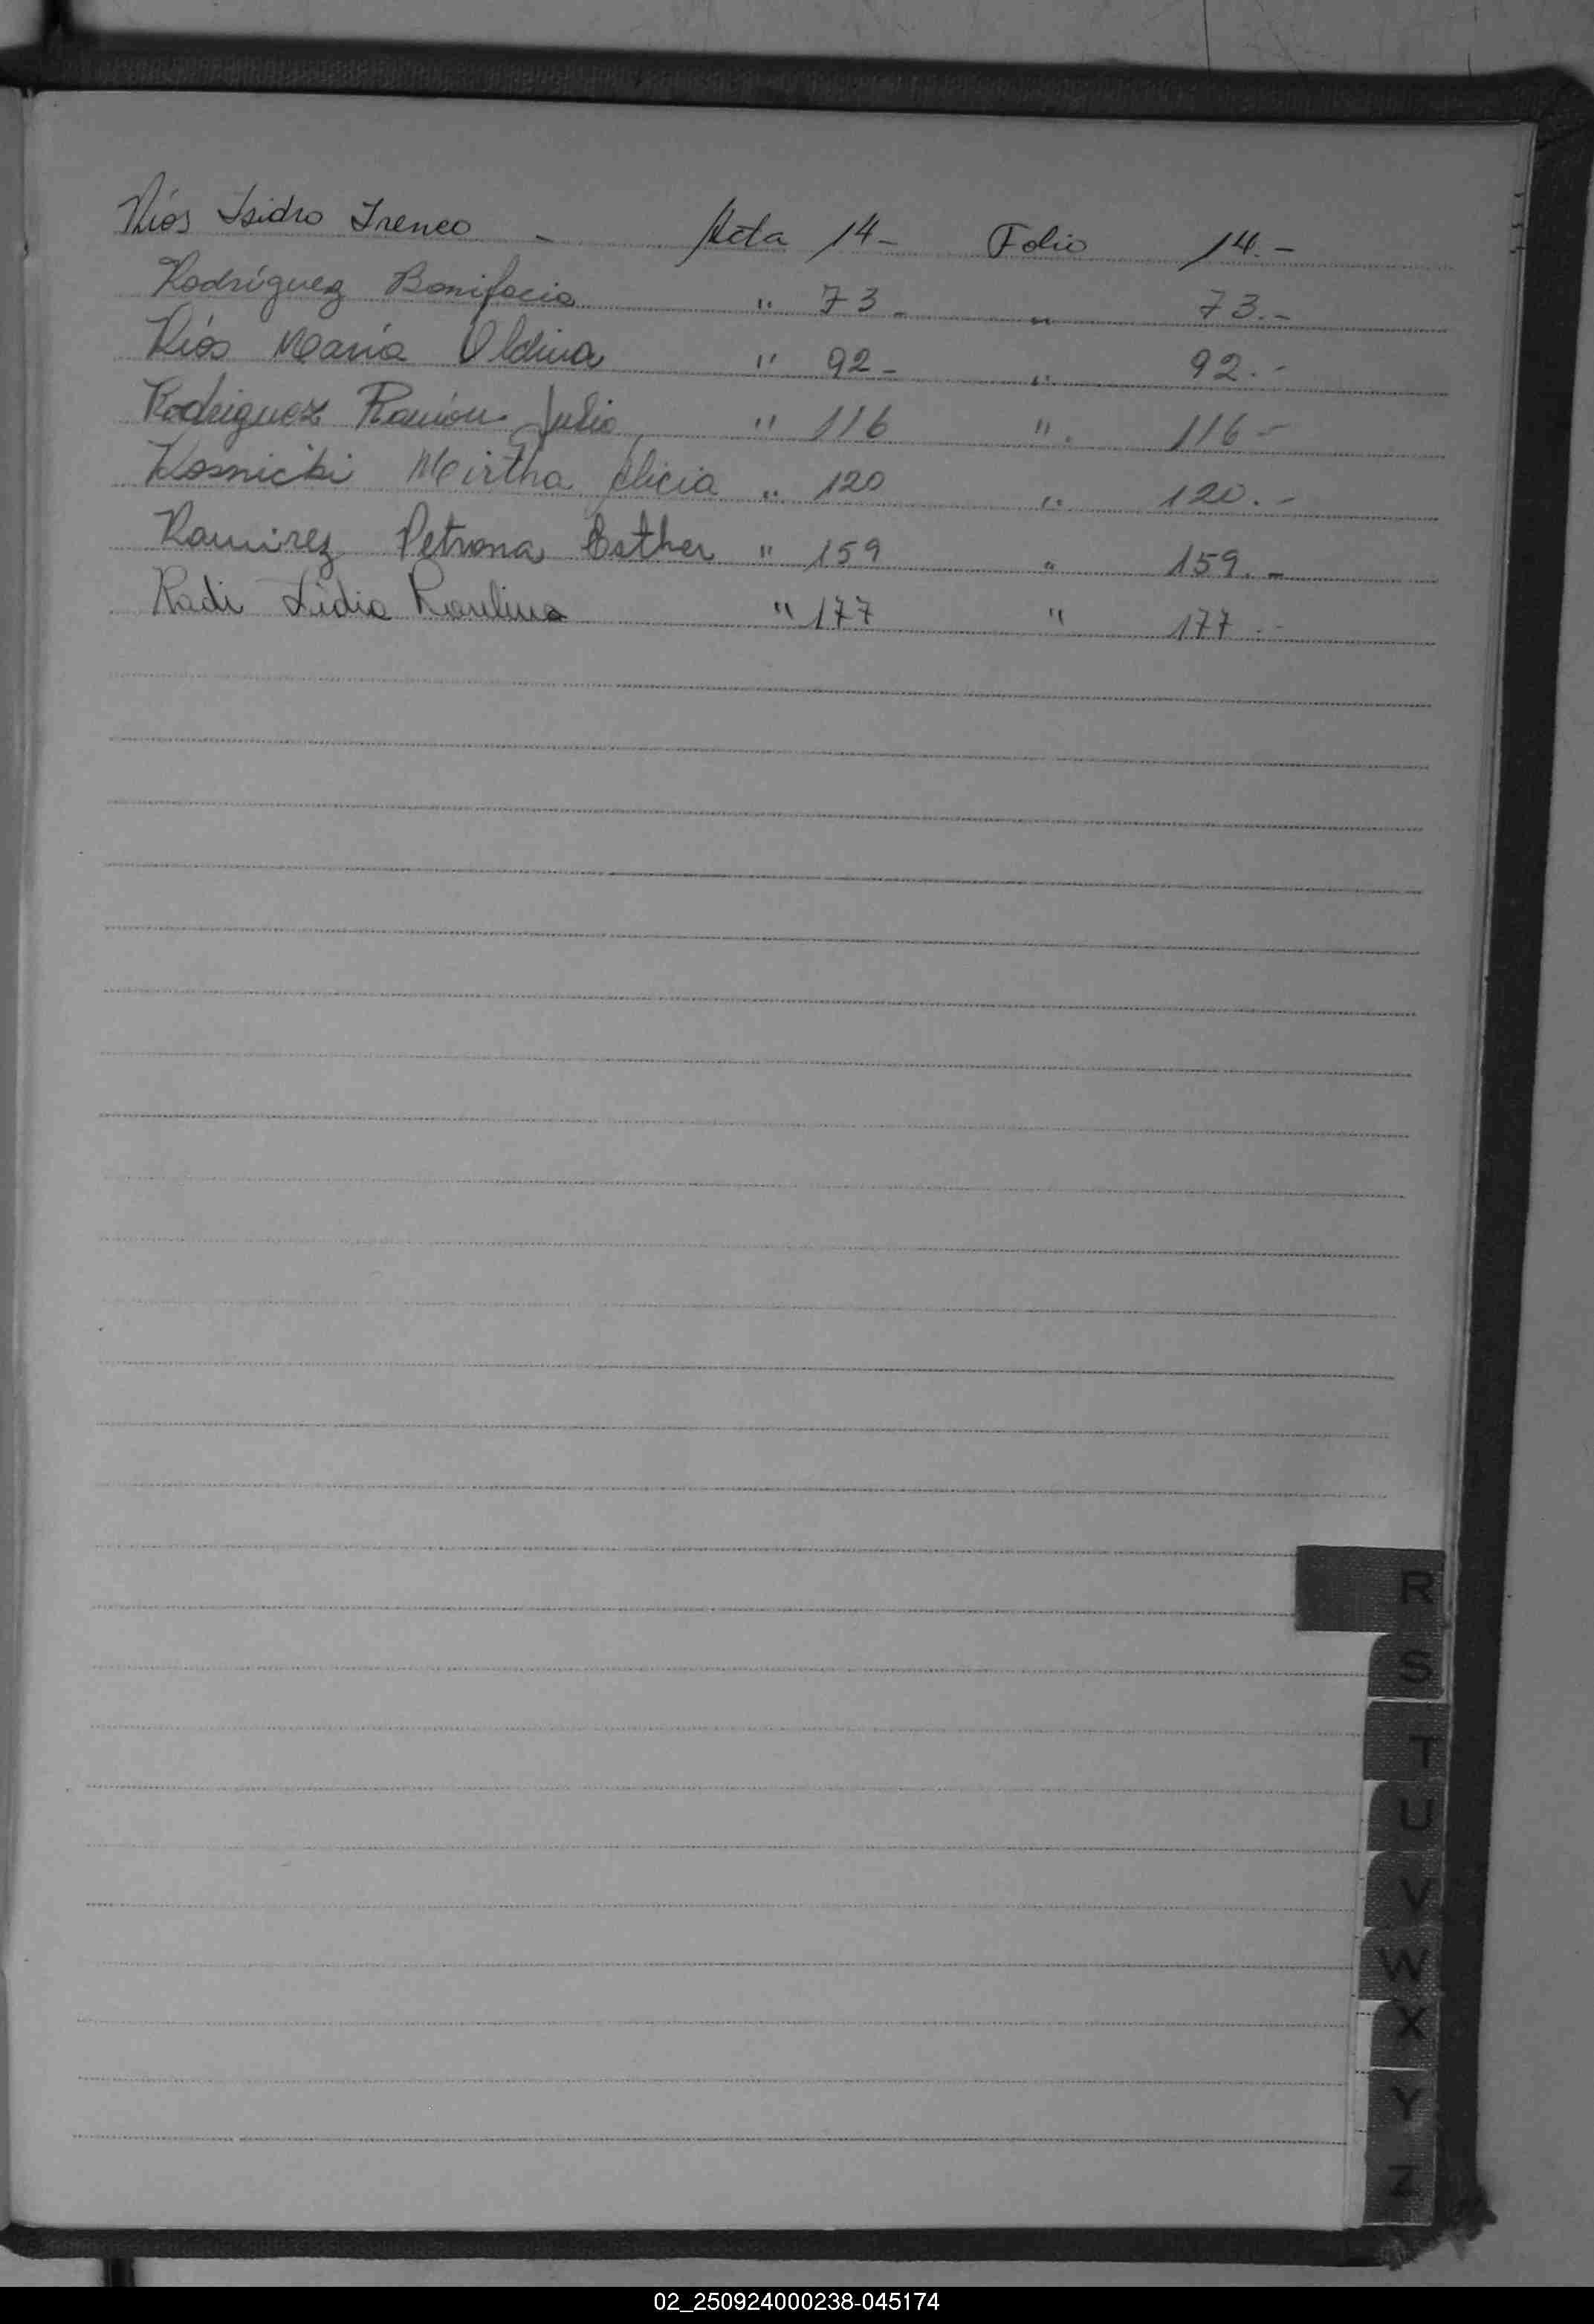 Ríos Isidro Ireneo - Acta 14- Folio 14.-
Rodríguez Bonifacia " 73- " 73.-
Ríos María Oldina " 92- " 92.-
Rodriguez Ramón Julio " 116 " 116-
Rosnicki Mirtha Alicia " 120 " 120.-
Ramirez Petrona Esther " 159 " 159.-
Radi Lidia Paulina " 177 " 177.-
R
S
T
U
V
W
X
Y
Z
02_250924000238-045174